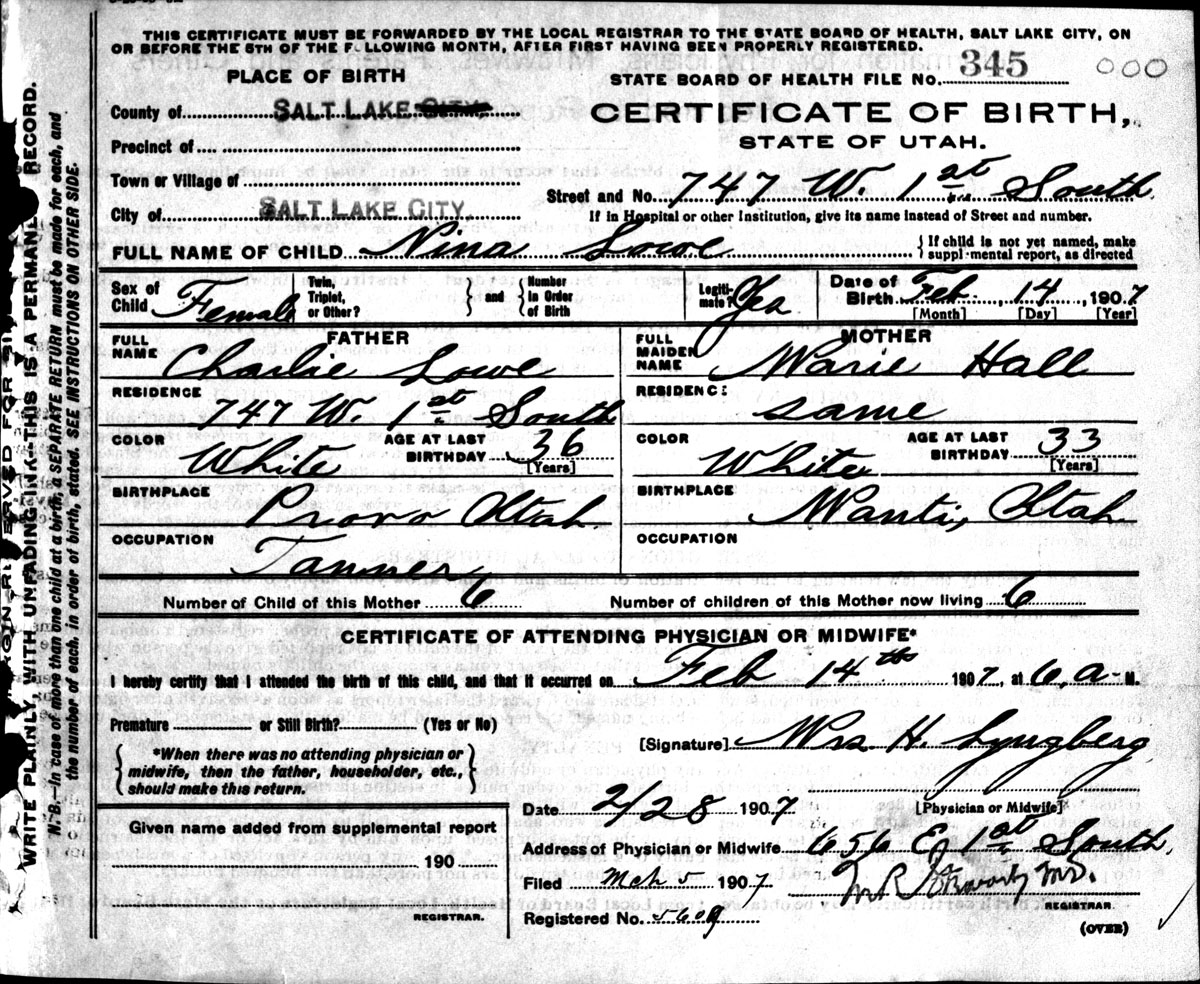 THIS CERTIFICATE MUST BE FORWARDED BY THE LOCAL REGISTRAR TO THE STATE BOARD OF HEALTH, SALT LAKE CITY, ON
OR BEFORE THE 5TH OF THE F LLOWING MONTH, AFTER FIRST HAVING BEEN PROPERLY REGISTERED.
PLACE OF BIRTH
STATE BOARD OF HEALTH FILE NO. 345 000
County of SALT LAKE CITY
CERTIFICATE OF BIRTH,
Precinct of
STATE OF UTAH.
Town or Village of
Street and No. 747 W. 1st South
City of SALT LAKE CITY.
If in Hospital or other Institution, give its name instead of Street and number.
FULL NAME OF CHILD Nina Lowe
{If child is not yet named, make
suppl-mental report, as directed
Sex of Child Female
Twin, Triplet, or Other? } and { Number in Order of Birth
Legiti-mate? Yes
Date of Birth Feb. 14, 1907
[Month] [Day] [Year]
FATHER
FULL NAME Charlie Lowe
MOTHER
FULL MAIDEN NAME Marie Hall
RESIDENCE 747 W. 1st South
RESIDENCE same
COLOR White AGE AT LAST BIRTHDAY 36 [Years]
COLOR White AGE AT LAST BIRTHDAY 33 [Years]
BIRTHPLACE Provo Utah
BIRTHPLACE Manti, Utah
OCCUPATION Tanner
OCCUPATION
Number of Child of this Mother 6
Number of children of this Mother now living 6
CERTIFICATE OF ATTENDING PHYSICIAN OR MIDWIFE*
I hereby certify that I attended the birth of this child, and that it occurred on Feb 14th 1907, at 6, a-M.
Premature or Still Birth? (Yes or No)
{*When there was no attending physician or
midwife, then the father, householder, etc.,
should make this return.}
[Signature] Mrs H. Lyngberg
[Physician or Midwife]
Date 2/28 1907
Given name added from supplemental report
190
REGISTRAR.
Address of Physician or Midwife 656 E 1st South,
Filed Mch 5 1907
M.D.
REGISTRAR.
Registered No. 5609
(OVER)
WRITE PLAINLY, WITH UNFADING INK-THIS IS A PERMANE RECORD.
N. B.-In case of more than one child at a birth, a SEPARATE RETURN must be made for each, and
the number of each, in order of birth, stated. SEE INSTRUCTIONS ON OTHER SIDE.